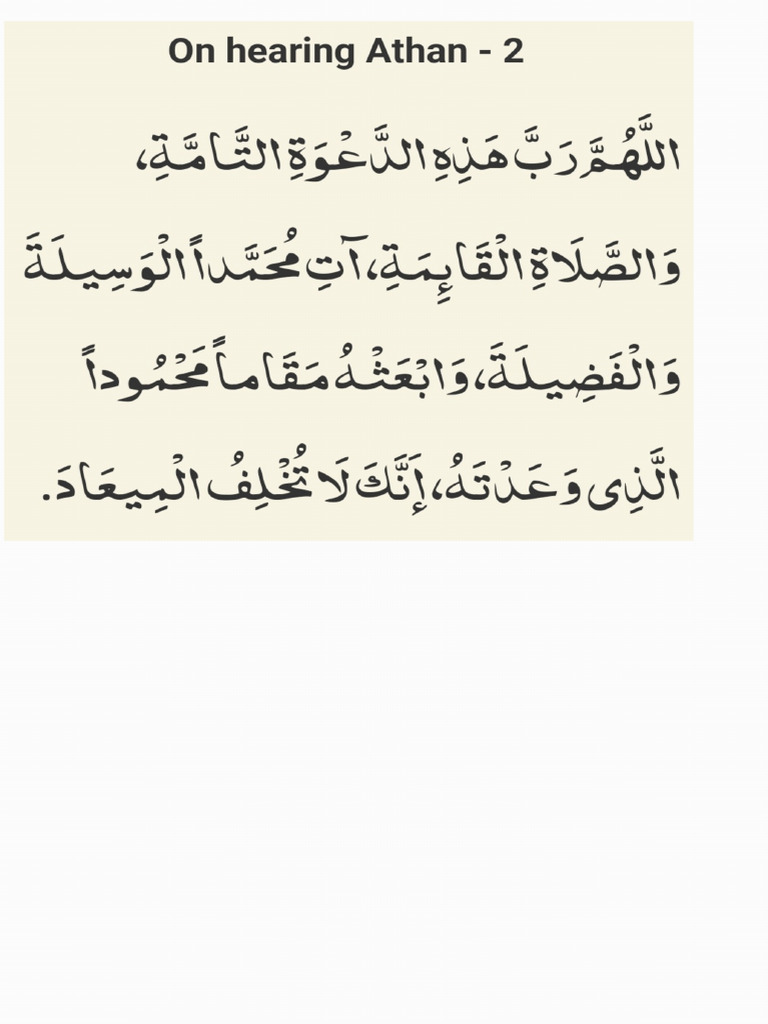 On hearing Athan - 2
اللَّهُمَّ رَبَّ هَذِهِ الدَّعْوَةِ التَّامَّةِ،
وَالصَّلَاةِ الْقَايِٕمَةِ، آتِ مُحَمَّداً الْوَسِيلَةَ
وَالْفَضِيلَةَ، وَابْعَثْهُ مَقَاماً مَحْمُوداً
الَّذِى وَعَدْتَهُ، إَنَّكَ لَا تُخْلِفُ الْمِيعَادَ.